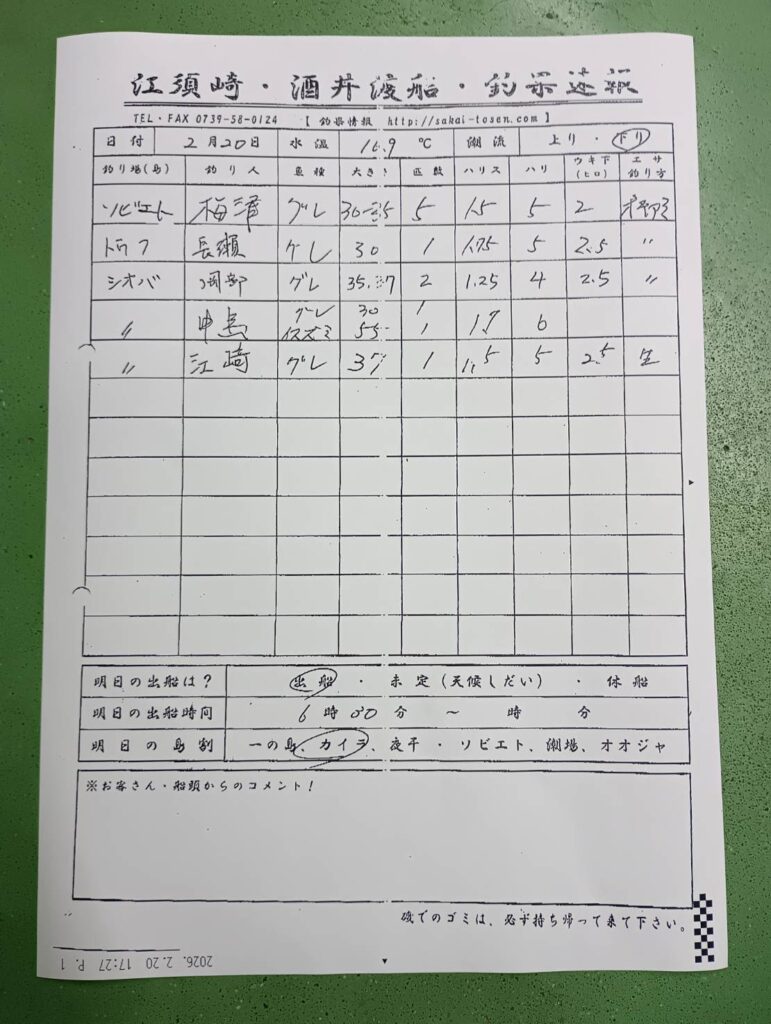 江須崎・酒井渡船・釣果速報
TEL・FAX 0739-58-0124 【 釣果情報 http://sakai-tosen.com 】
日付 2月20日 水温 16.9 ℃ 潮流 上り・下り
釣り場(島) 釣り人 魚種 大きさ 匹数 ハリス ハリ ウキ下(ヒロ) エサ釣り方
ソビエト 梅澤 グレ 30-35 5 1.5 5 2
長瀬 グレ 30 1 1.75 5 2.5 〃
シオバ 岡部 グレ 35.37 2 1.25 4 2.5 〃
〃 中島 グレ 30 1 1.7 6
イスズミ 55 1
〃 江崎 グレ 37 1 1.5 5 2.5 生
明日の出船は? 出船 ・ 未定(天候しだい) ・ 休船
明日の出船時間 6時00分 ~ 時 分
明日の島割 一の島、カイラ、夜平 ・ ソビエト、潮場、オオジャ
※お客さん・船頭からのコメント!
磯でのゴミは、必ず持ち帰って来て下さい。
2026. 2.20 17:27 P. 1